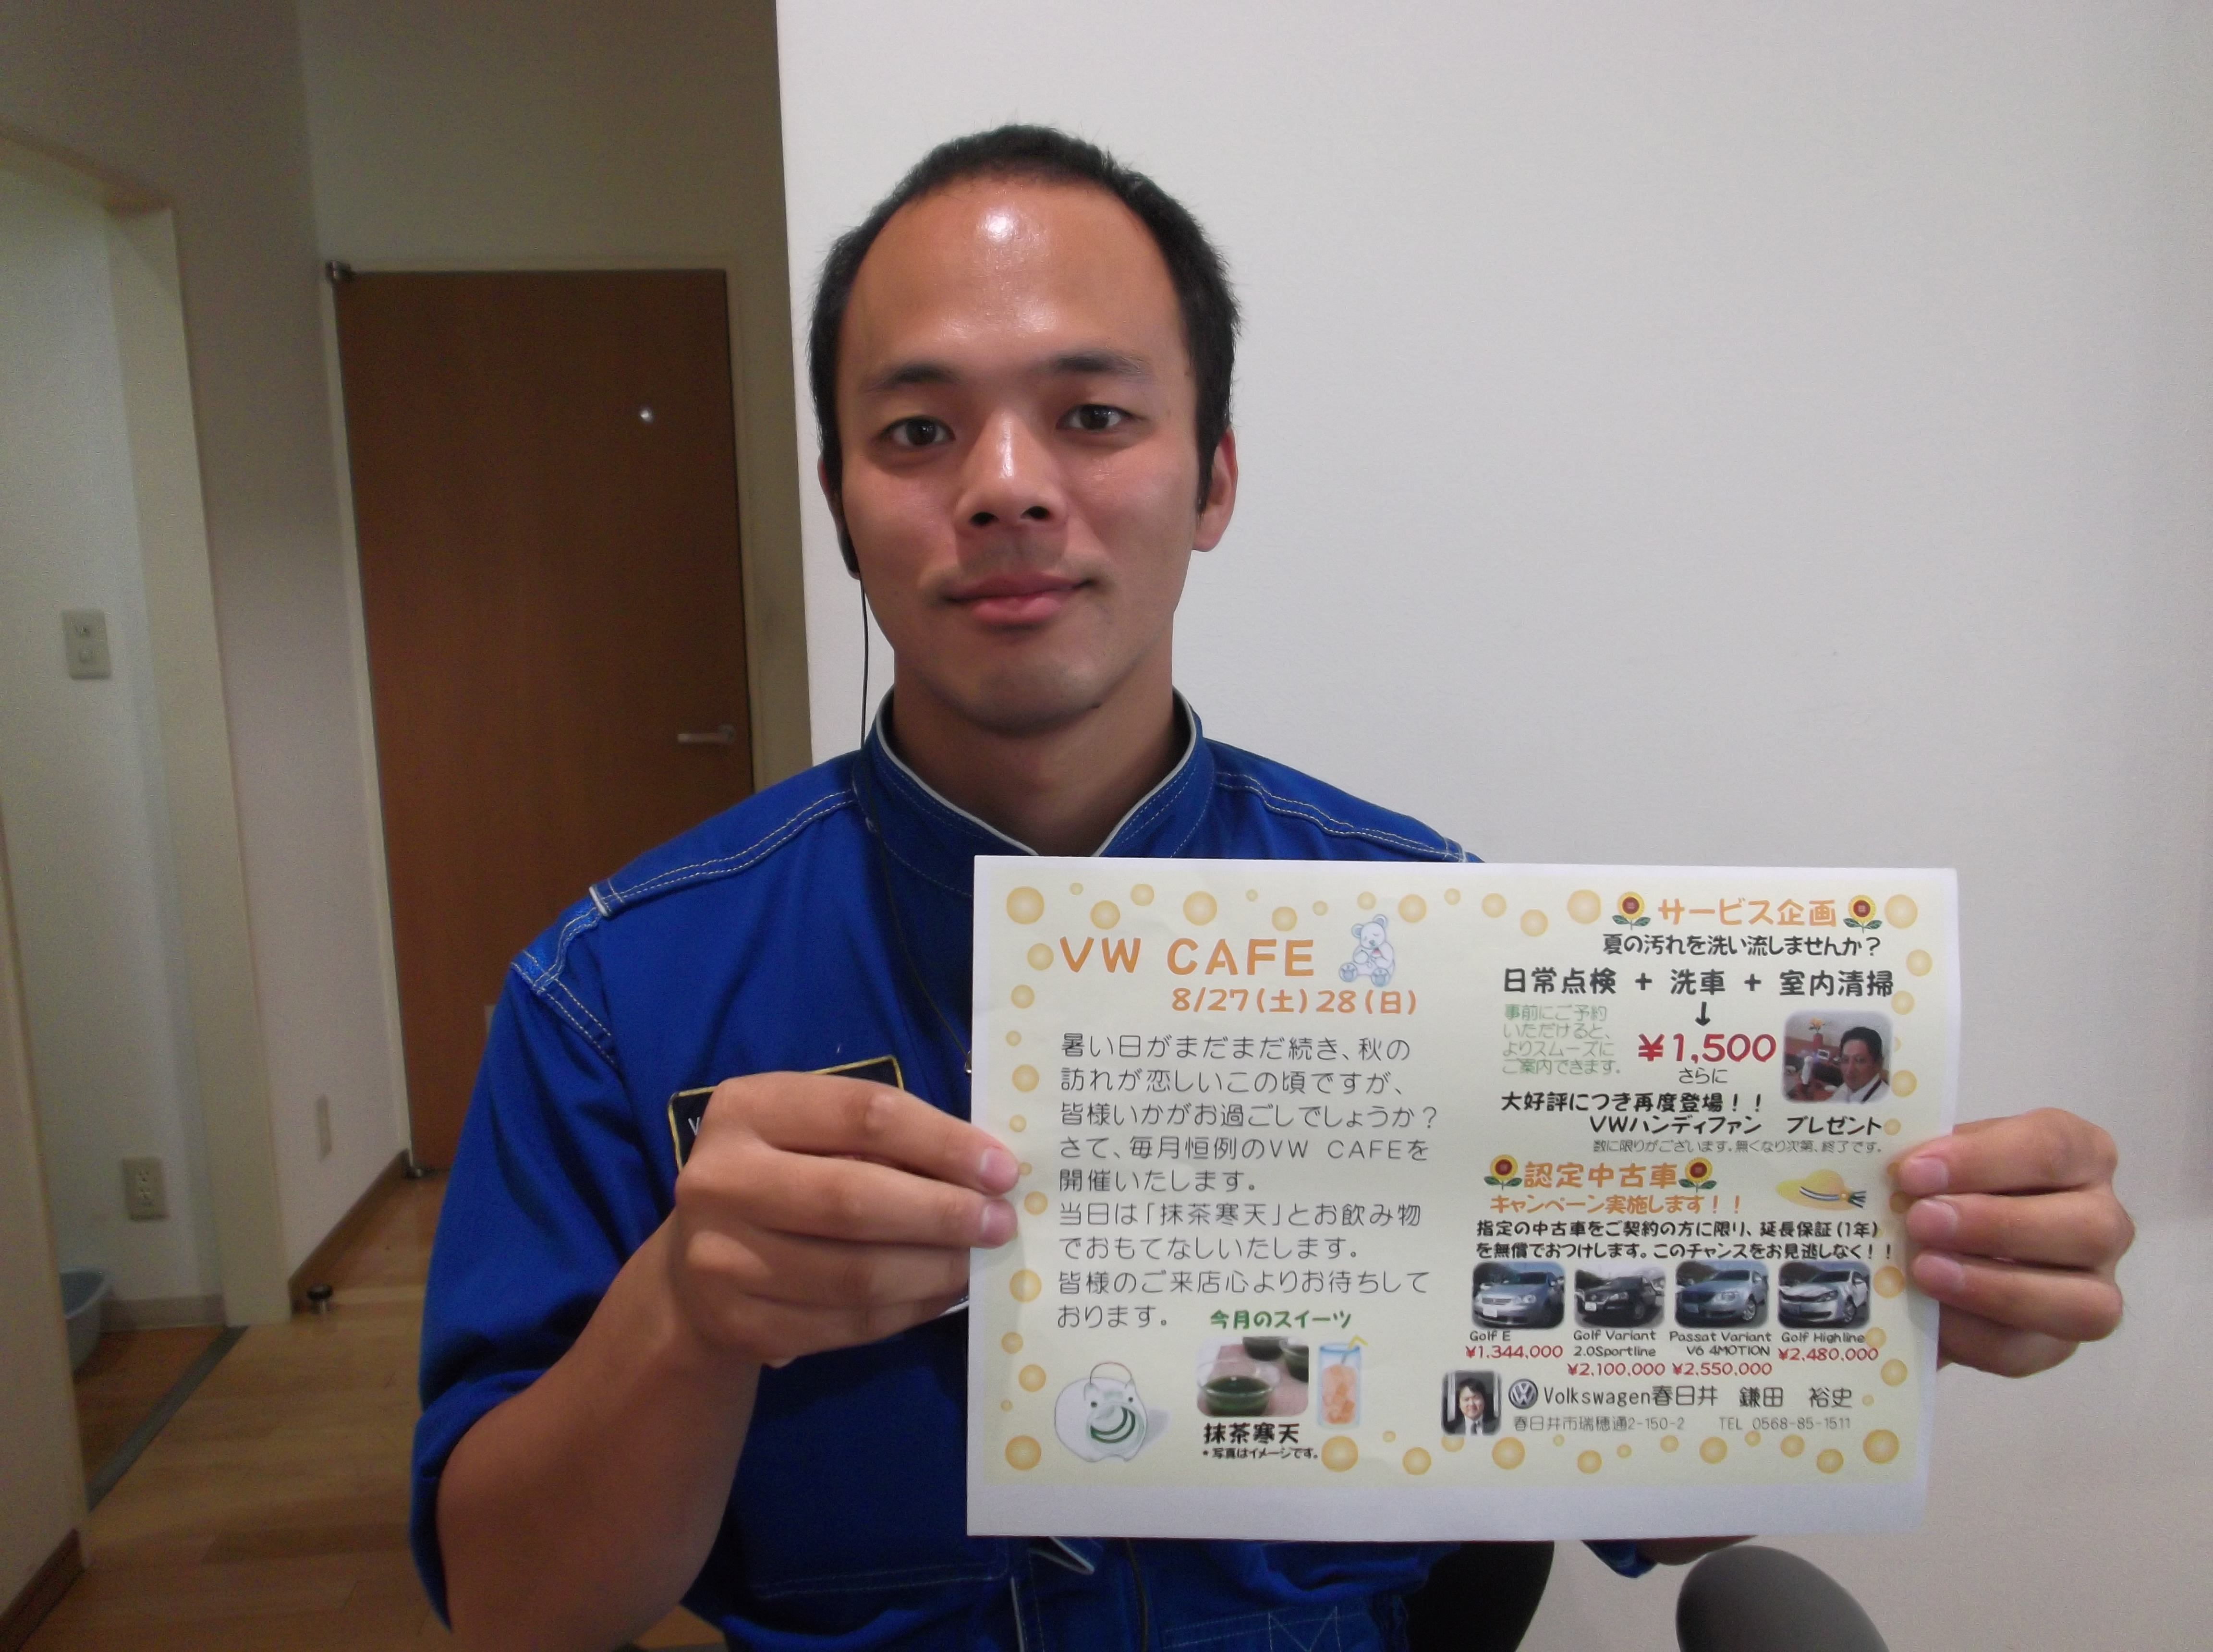 VW CAFE
8/27(土)28(日)
暑い日がまだまだ続き、秋の
訪れが恋しいこの頃ですが、
皆様いかがお過ごしでしょうか？
さて、毎月恒例のVW CAFEを
開催いたします。
当日は「抹茶寒天」とお飲み物
でおもてなしいたします。
皆様のご来店心よりお待ちして
おります。
今月のスイーツ
抹茶寒天
*写真はイメージです。
サービス企画
夏の汚れを洗い流しませんか？
日常点検 + 洗車 + 室内清掃
↓
事前にご予約
いただけると、
よりスムーズに
ご案内できます。
¥1,500
さらに
大好評につき再度登場！！
VWハンディファン プレゼント
数に限りがございます。無くなり次第、終了です。
認定中古車
キャンペーン実施します！！
指定の中古車をご契約の方に限り、延長保証(1年)
を無償でおつけします。このチャンスをお見逃しなく！！
Golf E
¥1,344,000
Golf Variant
2.0Sportline
¥2,100,000
Passat Variant
V6 4MOTION
¥2,550,000
Golf Highline
¥2,480,000
Volkswagen春日井 鎌田 裕史
春日井市瑞穂通2-150-2 TEL 0568-85-1511